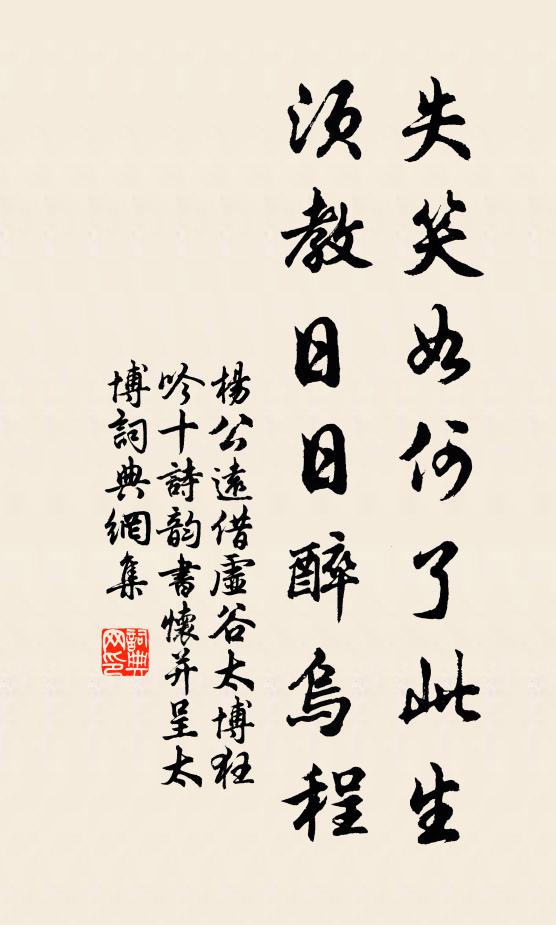 失笑如何了此生
須教日日醉烏程
楊公遠借虛谷太博狂
吟十詩韵書懷并呈太
博詞典網集
詞典網印